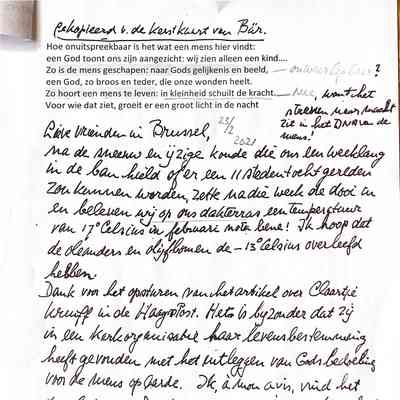 gekopieerd v. de Kerstkaart van Bär.
Hoe onuitspreekbaar is het wat een mens hier vindt:
een God toont ons zijn aangezicht: wij zien alleen een kind....
Zo is de mens geschapen: naar Gods gelijkenis en beeld, — onweerlegbaar?
een God, zo broos en teder, die onze wonden heelt.
Zo hoort een mens te leven: in kleinheid schuilt de kracht. — nee, want het
Voor wie dat ziet, groeit er een groot licht in de nacht
streven naar macht
zit in het DNA van de
mens!
Lieve Vrienden in Brussel, 23/2 2021
na de sneeuw en ijzige koude die ons een week lang
in de ban hield of er een 11 stedentocht gereden
zou kunnen worden, zette na die week de dooi in
en beleven wij op ons dakterras een temperatuur
van 17° Celsius in februarie nota bene! Ik hoop dat
de oleanders en olijfbomen de -13° Celsius overleefd
hebben.
Dank voor het opsturen van het artikel over Claartje
Kruijff in de Haagse Post. Het is bijzonder dat zij
in een Kerkorganisatie haar levensbestemming
heeft gevonden met het uitleggen van Gods bedoeling
voor de mens op aarde. Ik, à mon avis, vind het